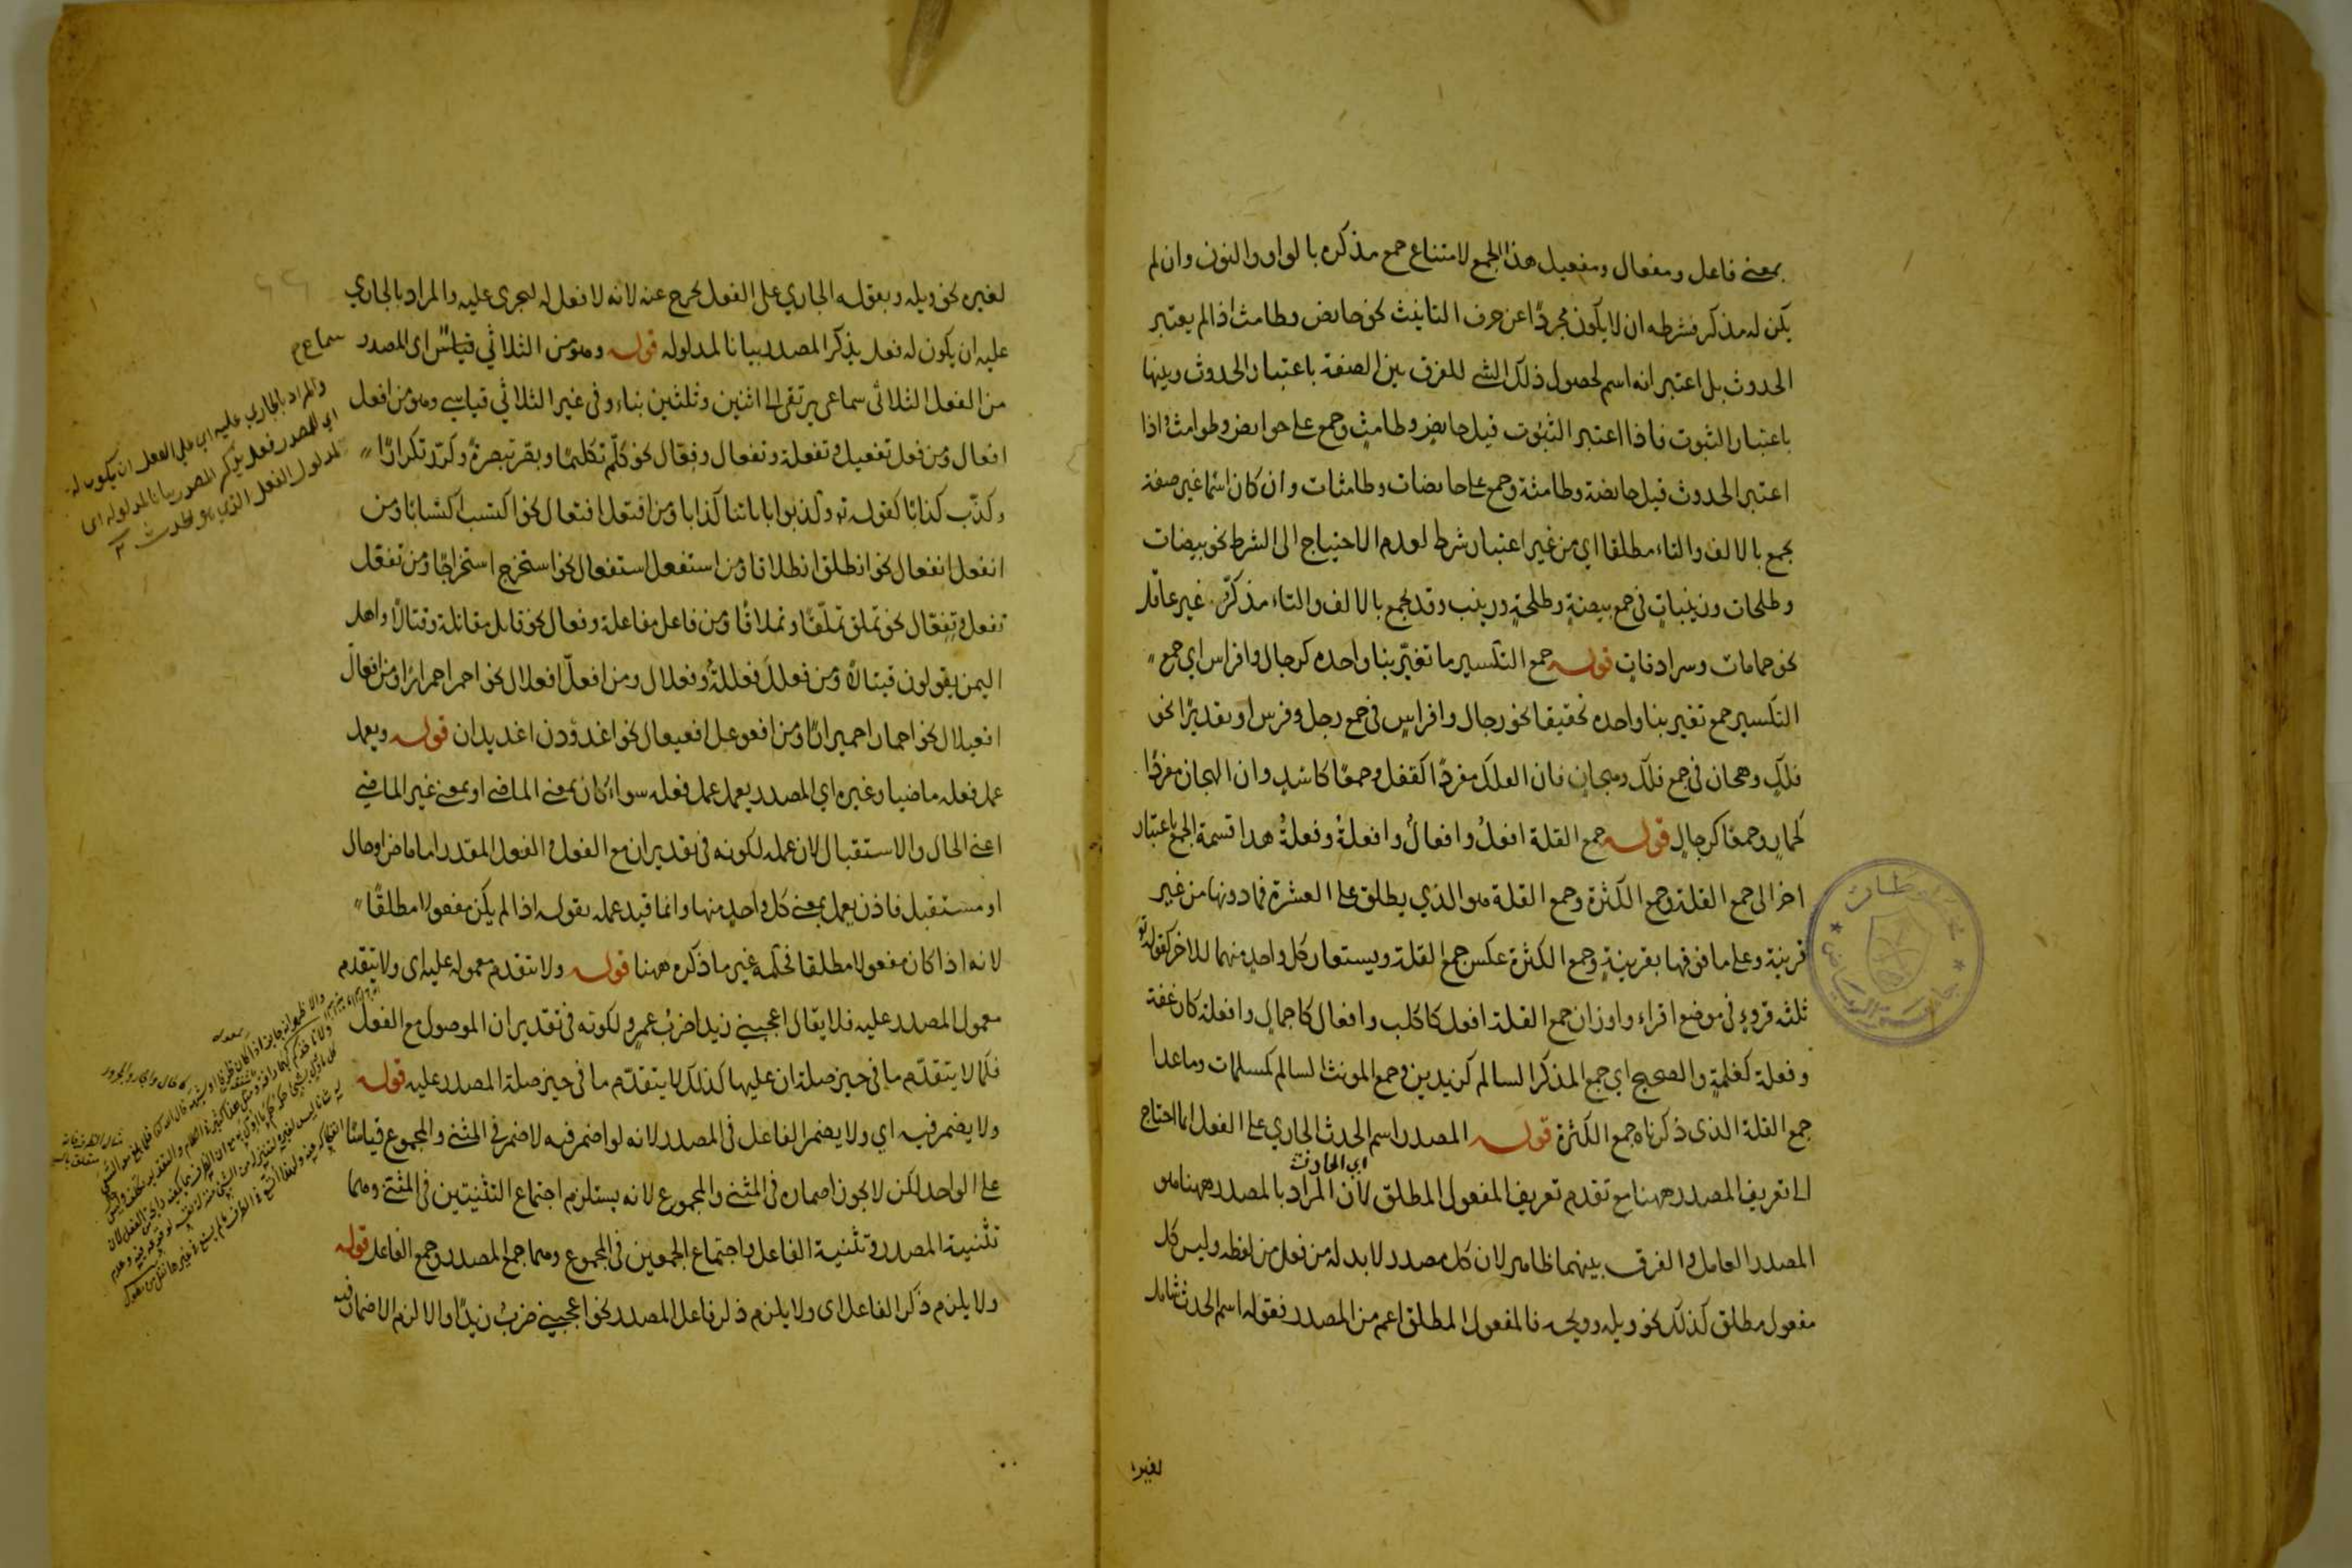 بمعنى فاعل ومفعال ومفعيل هذا الجمع لامتناع جمع مذكره بالواو والنون وان لم
يكن له مذكر فشرطه ان لا يكون مجردًا عن حرف التانيث نحو حايض وطامث اذا لم يعتبر
الحدوث بل اعتبر انه اسم لحصول ذلك الشى للفرق بين الصفة باعتبار الحدوث وبينها
باعتبار الثبوت فاذا اعتبر الثبوت قيل حايض وطامث وجمع على حوايض وطوامث واذا
اعتبر الحدوث قيل حايضة وطامثة وجمع على حايضات وطامثات وان كان اسمًا غير صفة
يجمع بالالف والتاء مطلقا اى من غير اعتبار شرط لعدم الاحتياج الى الشرط نحو بيضات
وطلحات وزينبات في جمع بيضة وطلحة وزينب وقد يجمع بالالف والتاء مذكر غير عاقل
نحو حمامات وسرادقات قوله جمع التكسير ما تغير بنا واحده كرجال وافراس اى جمع
التكسير جمع تغير بنا واحده تحقيقا نحو رجال وافراس في جمع رجل وفرس او تقديرًا نحو
فلك وهجان في جمع فلك وهجان فان الفلك مفردًا كقفل وجمعًا كاسد وان الهجان مفردًا
كحمار وجمعًا كرجال قوله جمع القلة افعل وافعال وافعلة وفعلة هذا قسمة الجمع باعتبار
اخر الى جمع القلة وجمع الكثرة وجمع القلة هو الذي يطلق على العشرة فما دونها من غير
قرينة وعلى ما فوقها بقرينة وجمع الكثرة عكس جمع القلة ويستعار كل واحد منهما للاخر كقوله تع
ثلثة قروء في موضع اقراء واوزان جمع القلة افعل كاكلب وافعال كاجمال وافعلة كارغفة
وفعلة كغلمة والصحيح اى جمع المذكر السالم كزيدين وجمع المونث السالم كمسلمات وما عدا
جمع القلة الذى ذكرناه جمع الكثرة قوله المصدر اسم الحدث الجاري على الفعل انما احتاج
اى الحادث
الى تعريف المصدر ههنا مع تقدم تعريف المفعول المطلق لان المراد بالمصدر ههنا هو
المصدر العامل والفرق بينهما ظاهر لان كل مصدر لا بد له من فعل من لفظه وليس كل
مفعول مطلق كذلك نحو ويله وويحه فالمفعول المطلق اعم من المصدر فقوله اسم الحدث شامل
لغيره
لغيره نحو ويله وبقوله الجاري على الفعل يخرج عنه لانه لا فعل له ليجرى عليه والمراد بالجاري
عليه ان يكون له فعل يذكر المصدر بيانا لمدلوله قوله وهو من الثلاثي قياس اى المصدر
سماع م
من الفعل الثلاثى سماعى يرتقى الى اثنين وثلثين بناء وفى غير الثلاثي قياسى وهو من افعل
افعال ومن فعل تفعيل وتفعلة وتفعال وفعّال نحو كلّم تكليمًا وبصّر تبصرةً وكرّر تكرارًا
وكذّب كذابًا كقوله تع وكذبوا باياتنا كذابا ومن افتعل افتعال نحو اكتسب اكتسابًا ومن
انفعل انفعال نحو انطلق انطلاقا ومن استفعل استفعال نحو استخرج استخراجًا ومن تفعّل
تفعل وتفعّال نحو تملّق تملّقًا وتملاقًا ومن فاعل مفاعلة وفعال نحو قاتل مقاتلة وقتالًا واهل
اليمن يقولون قيتالًا ومن فعلل فعللة وفعلال ومن افعلّ افعلال نحو احمر احمرارًا ومن افعالّ
افعيلال نحو احمار احميرارًا ومن افعوعل افعيعال نحو اغدودن اغديدان قوله ويعمل
عمل فعله ماضيا وغيره اي المصدر يعمل عمل فعله سواء كان بمعنى الماضى او بمعنى غير الماضي
اعنى الحال والاستقبال لان عمله لكونه فى تقدير ان مع الفعل والفعل المقدر اما ماض او حال
او مستقبل فاذن يعمل بمعنى كل واحد منها وانما قيد عمله بقوله اذا لم يكن مفعولا مطلقًا
لانه اذا كان مفعولا مطلقا فحكمه غير ما ذكره ههنا قوله ولا يتقدم معموله عليه اى ولا يتقدم
معمول المصدر عليه فلا يقال اعجبني زيدا ضرب عمرو لكونه فى تقدير ان الموصول مع الفعل
فكما لا يتقدّم ما في حيز صلة ان عليها كذلك لا يتقدّم ما فى حيز صلة المصدر عليه قوله
ولا يضمر فيه اي ولا يضمر الفاعل فى المصدر لانه لو اضمر فيه لاضمر في المثنى والمجموع قياسًا
على الواحد لكن لا يجوز اضماره فى المثنى والمجموع لانه يستلزم اجتماع التثنيتين فى المثنى وهما
تثنية المصدر وتثنية الفاعل واجتماع الجمعين فى المجموع وهما جمع المصدر وجمع الفاعل قوله
ولا يلزم ذكر الفاعل اى ولا يلزم ذكر فاعل المصدر نحو اعجبني ضربُ زيدًا والا لزم الاضمار فيه
والمراد بالجاري عليه اي على الفعل ان يكون له
اي للمصدر فعل يذكر المصدر بيانا لمدلوله اى
لمدلول الفعل الذي هو الحدث